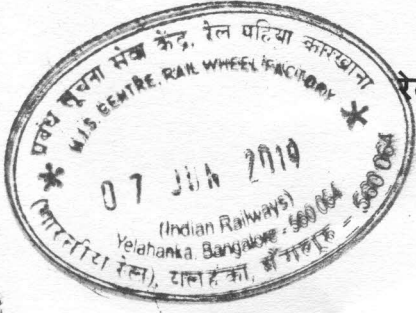 प्रबंध सूचना सेवा केंद्र, रेल पहिया कारखाना
M.I.S. CENTRE, RAIL WHEEL FACTORY
07 JUN 2019
(Indian Railways)
Yelahanka, Bangalore - 560 064
(भारतीय रेल), यलहंका, बेंगलूरु - 560 064